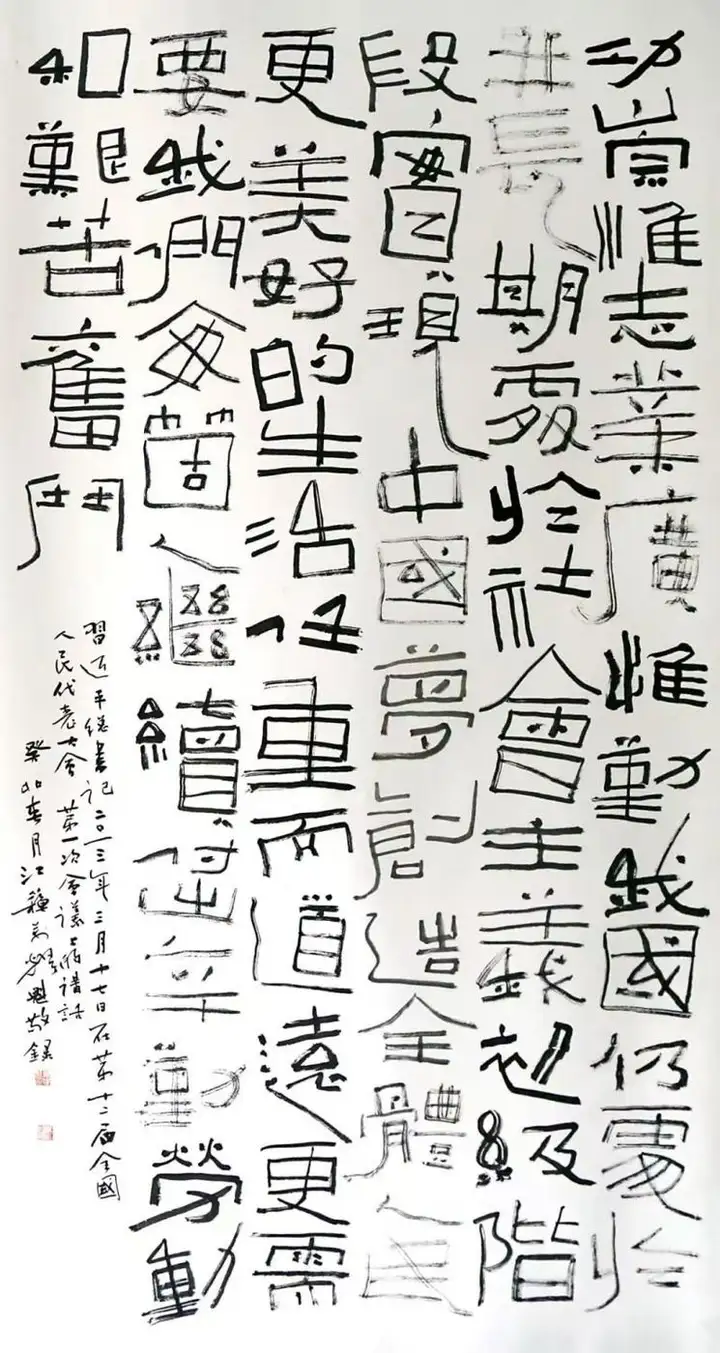 功崇惟志業廣惟勤我國仍處於
并長期處於社會主義初級階
段實現中國夢創造全體人民
更美好的生活任重而道遠更需
要我們每箇人繼續付出辛勤勞動
和艱苦奮鬥
習近平總書記二〇一三年三月十七日在第十二屆全國
人民代表大會第一次會議上的講話
癸卯春月江蘇敬錄